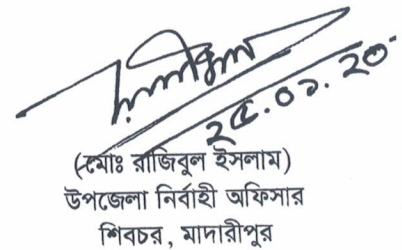 ২৫.০১.২০
(মোঃ রাজিবুল ইসলাম)
উপজেলা নির্বাহী অফিসার
শিবচর, মাদারীপুর